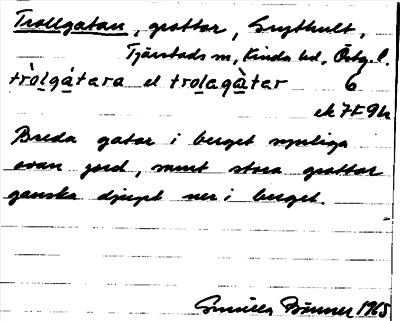 Trollgatan, grottor, Smythult,
Tjärstads sn, Kinda hd, Östg. l.
tròlgátara el trolagàtar 6
ek 7F9h
Breda gator i berget synliga
ovan jord, samt stora grottor
ganska djupt ner i berget.
Gunilla Bönner 1965